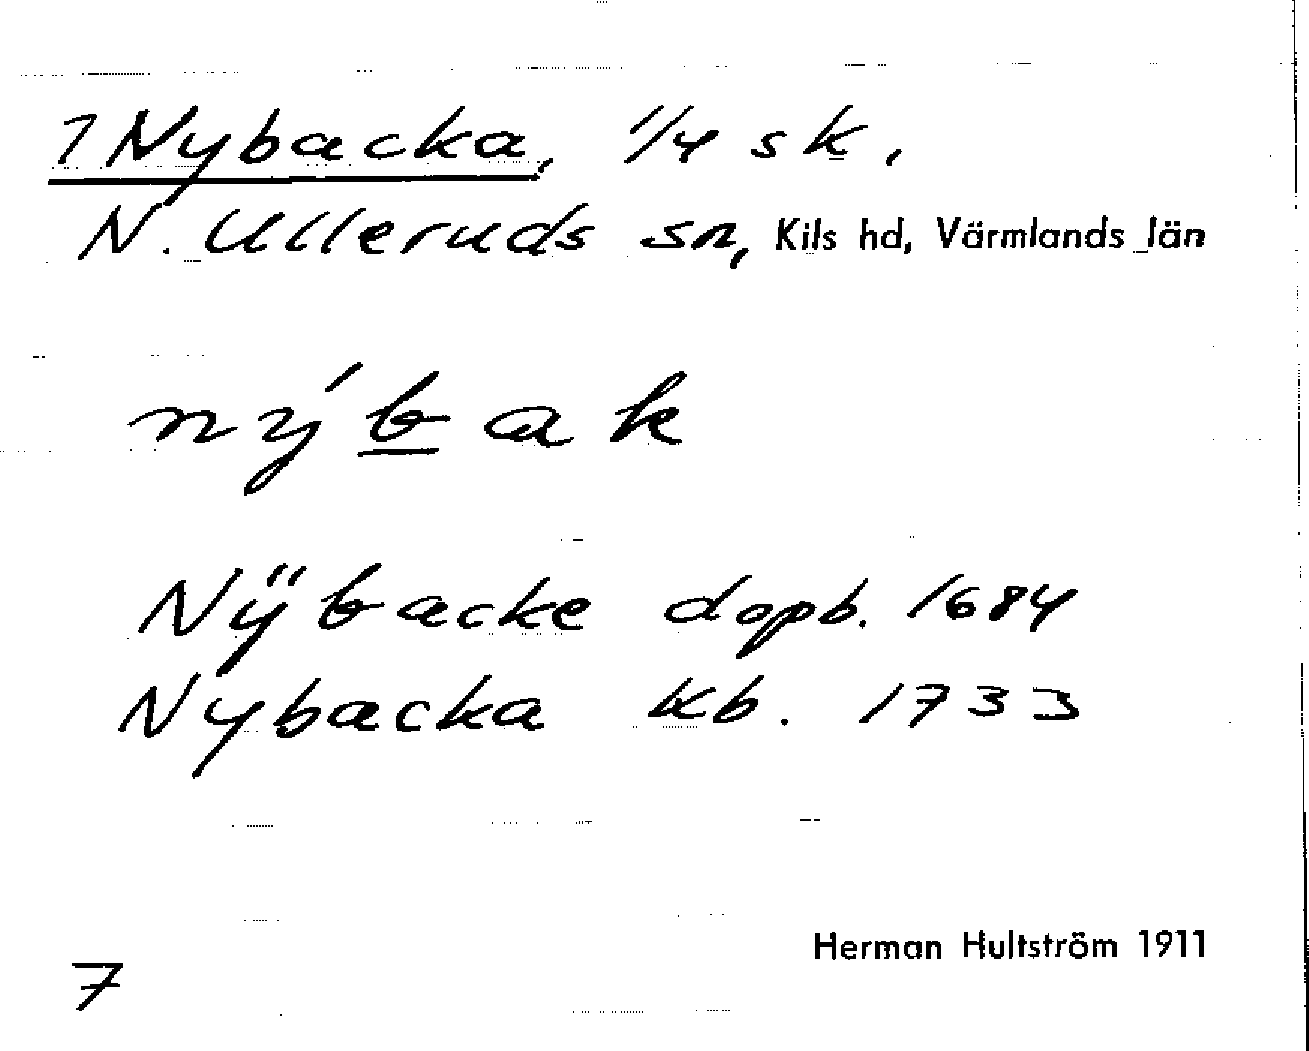 7 Nybacka, 1/4 sk,
N. Ulleruds sn, Kils hd, Värmlands län
nýbak
Nÿbacke dopb. 1684
Nybacka kb. 1733
Herman Hultström 1911
7